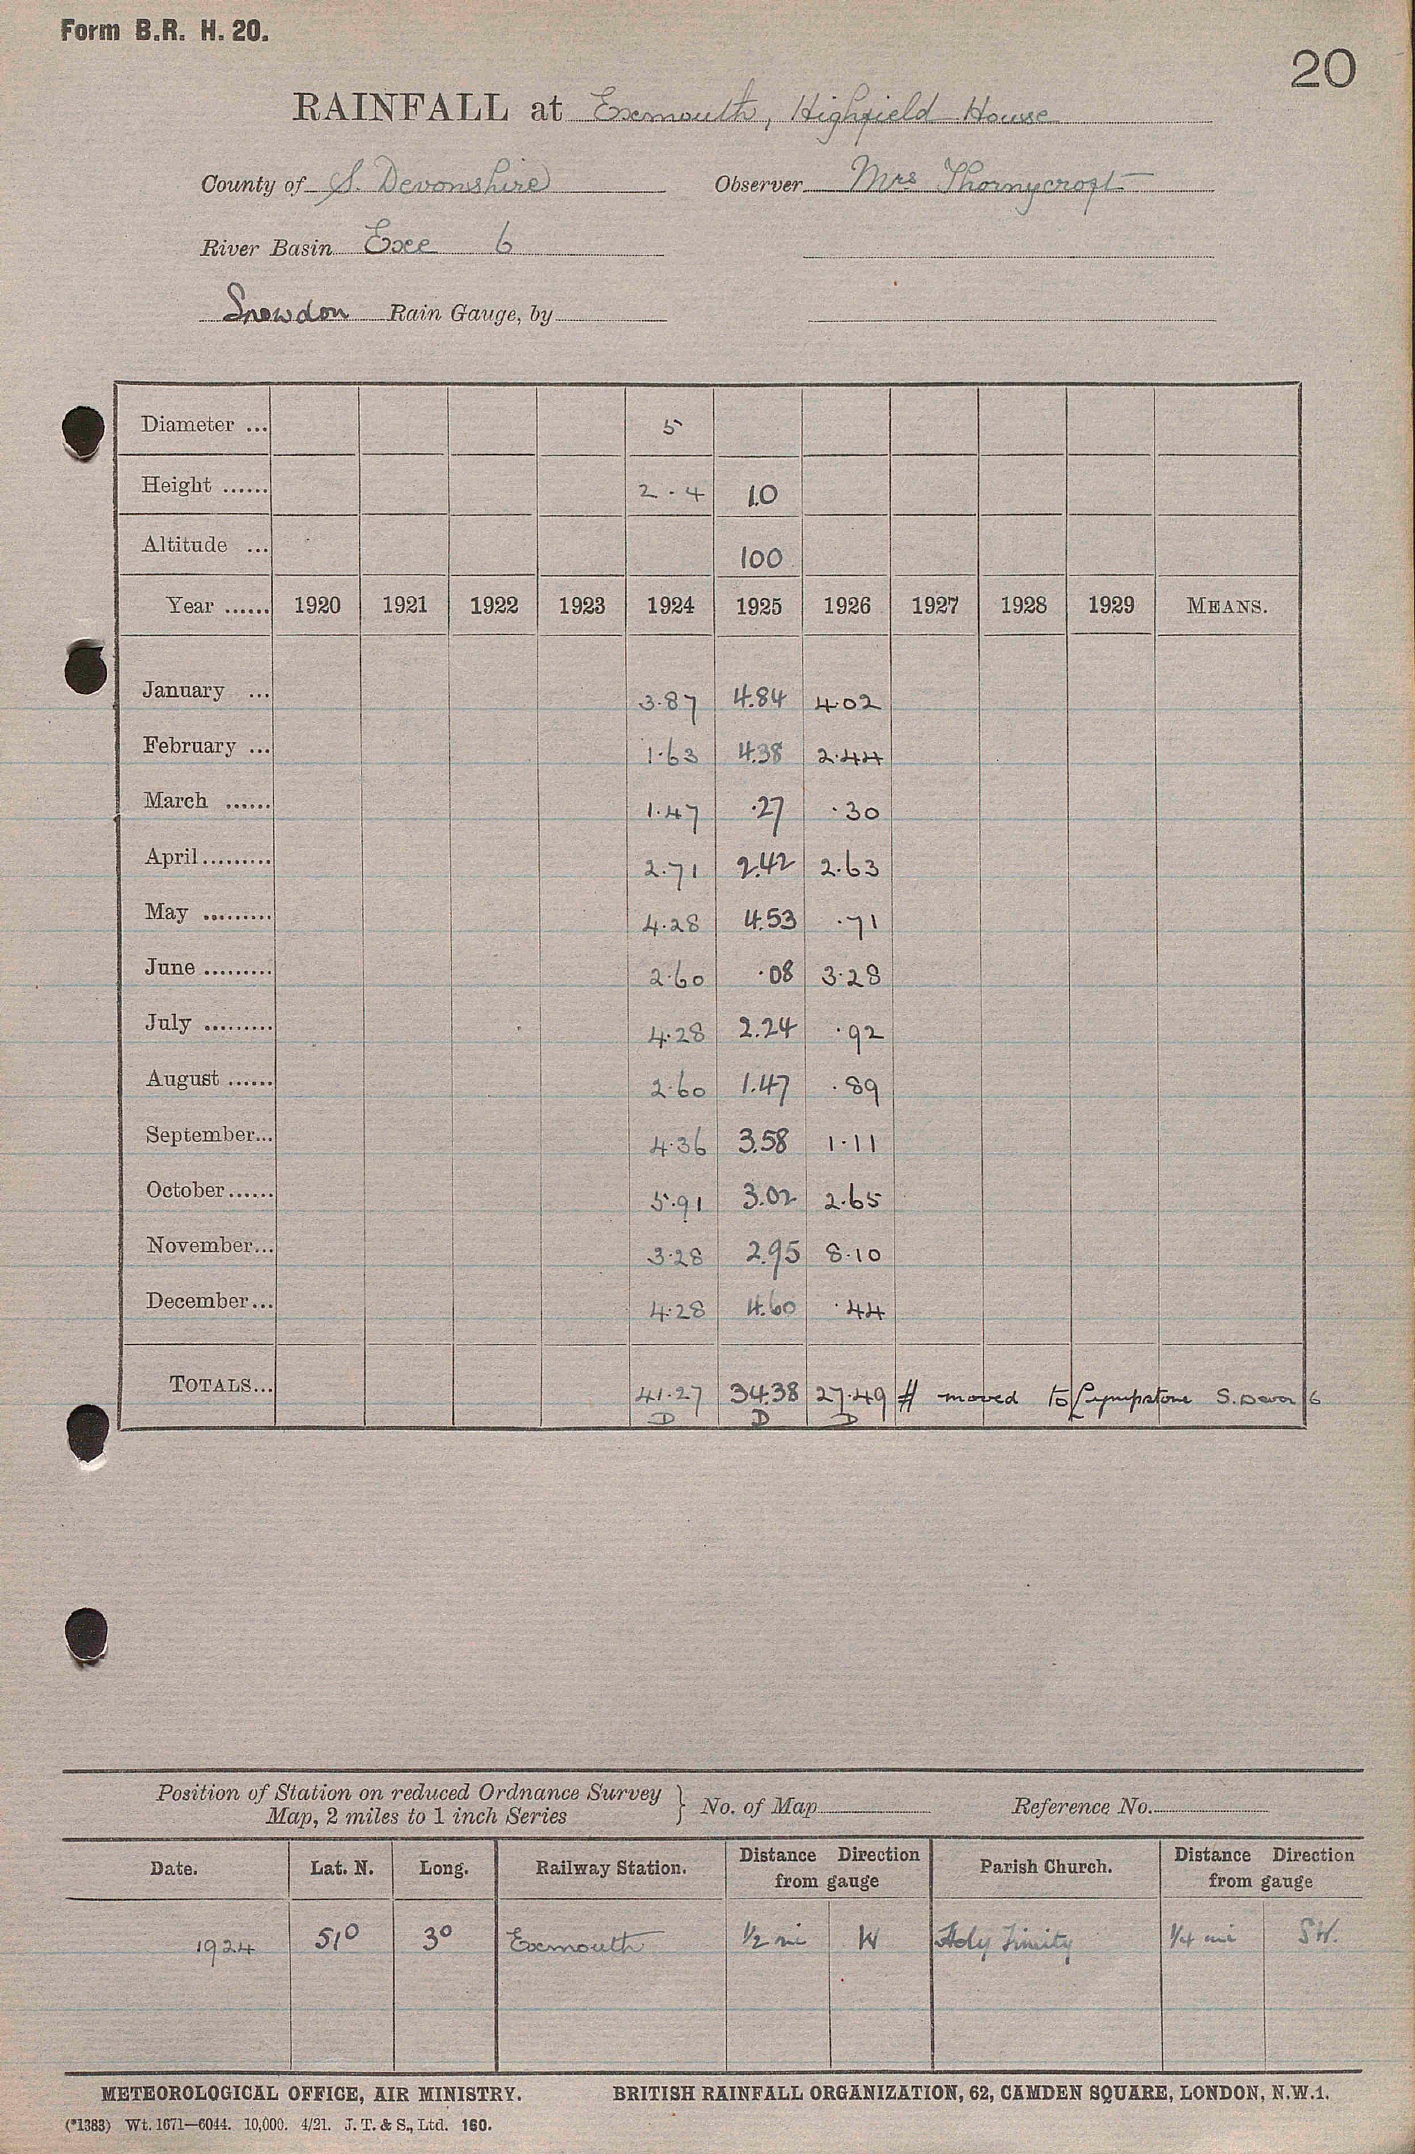 Form B.R. H. 20.
20
RAINFALL at Exmouth, Highfield House
County of S. Devonshire Observer Mrs Thornycroft
River Basin Exe 6
Snowdon Rain Gauge, by
Diameter ... 5
Height ...... 2.4 1.0
Altitude ... 100
Year ...... 1920 1921 1922 1923 1924 1925 1926 1927 1928 1929 MEANS.
January ... 3.87 4.84 4.02
February ... 1.63 4.38 2.44
March ...... 1.47 .27 .30
April......... 2.71 2.42 2.63
May ......... 4.28 4.53 .71
June ......... 2.60 .08 3.28
July ......... 4.28 2.24 .92
August ...... 2.60 1.47 .89
September... 4.36 3.58 1.11
October...... 5.91 3.02 2.65
November... 3.28 2.95 8.10
December... 4.28 4.60 .44
TOTALS... 41.27 34.38 27.49 # moved to Lympstone S. Devon 6
D D D
Position of Station on reduced Ordnance Survey
Map, 2 miles to 1 inch Series } No. of Map Reference No.
Date. Lat. N. Long. Railway Station. Distance Direction from gauge Parish Church. Distance Direction from gauge
1924 51° 3° Exmouth 1/2 mi W Holy Trinity 1/4 mi SW.
METEOROLOGICAL OFFICE, AIR MINISTRY. BRITISH RAINFALL ORGANIZATION, 62, CAMDEN SQUARE, LONDON, N.W.1.
(*1383) Wt. 1671—6044. 10,000. 4/21. J. T. & S., Ltd. 160.